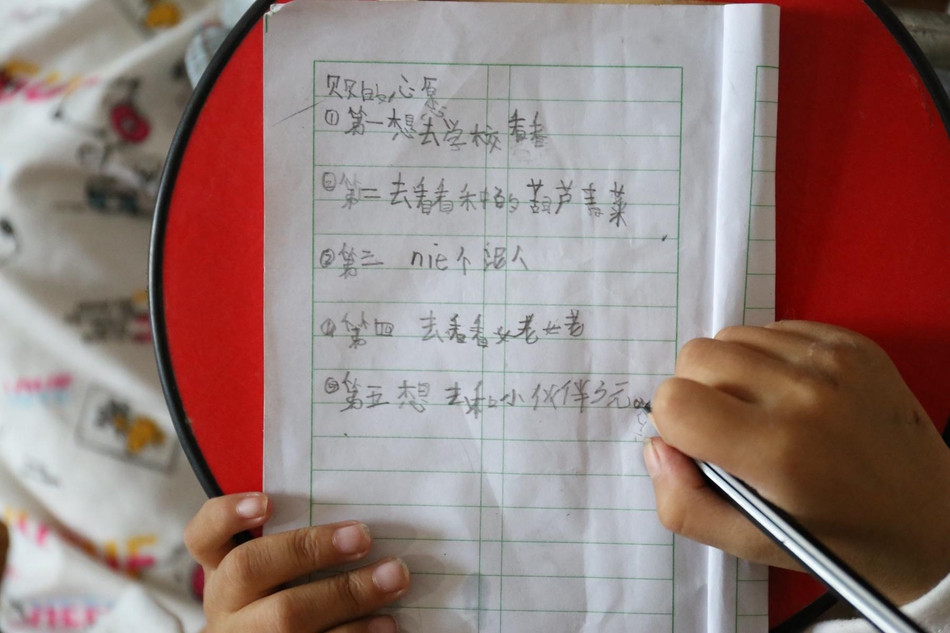 贝贝的心愿
①第一想去学校看看
②第二去看看种的葫芦青菜
③第三 nie个泥人
④第四 去看看姥姥
⑤第五想去和小伙伴